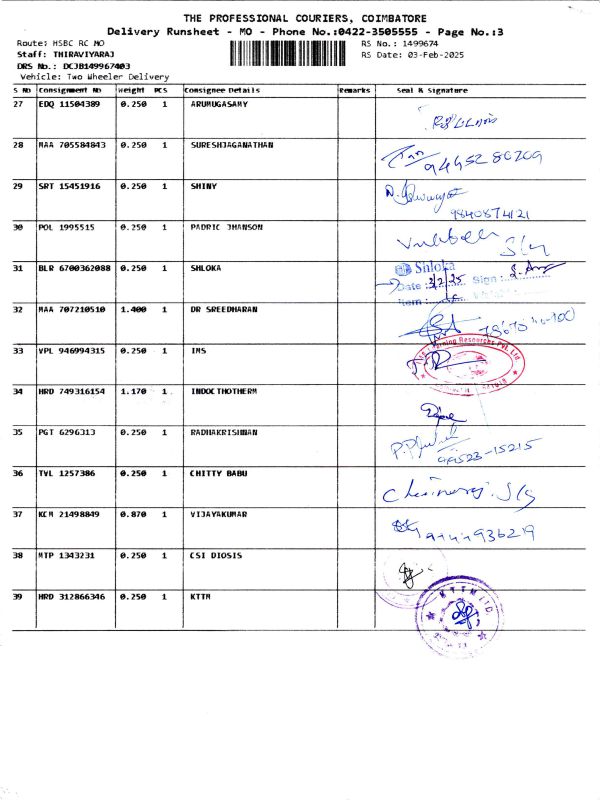 THE PROFESSIONAL COURIERS, COIMBATORE
Delivery Runsheet - MO - Phone No.:0422-3505555 - Page No.:3
Route: HSBC RC MO
RS No.: 1499674
Staff: THIRAVIYARAJ
RS Date: 03-Feb-2025
DRS No.: DCJB149967403
Vehicle: Two Wheeler Delivery
S No Consignment No Weight PCS Consignee Details Remarks Seal & Signature
27 EDQ 11504389 0.250 1 ARUMUGASAMY
28 MAA 705584843 0.250 1 SURESHJAGANATHAN
29 SRT 15451916 0.250 1 SHINY
9840874121
30 POL 1995515 0.250 1 PADRIC JHANSON
31 BLR 6700362088 0.250 1 SHLOKA
Shloka
Date : 3/2/25 Sign :
Item :
32 MAA 707210510 1.400 1 DR SREEDHARAN
33 VPL 946994315 0.250 1 IMS
Learning Resources Pvt. Ltd
34 HRD 749316154 1.170 1 INDOCTHOTHERM
35 PGT 6296313 0.250 1 RADHAKRISHNAN
36 TVL 1257386 0.250 1 CHITTY BABU
37 KCM 21498849 0.870 1 VIJAYAKUMAR
38 MTP 1343231 0.250 1 CSI DIOSIS
39 HRD 312866346 0.250 1 KTTM